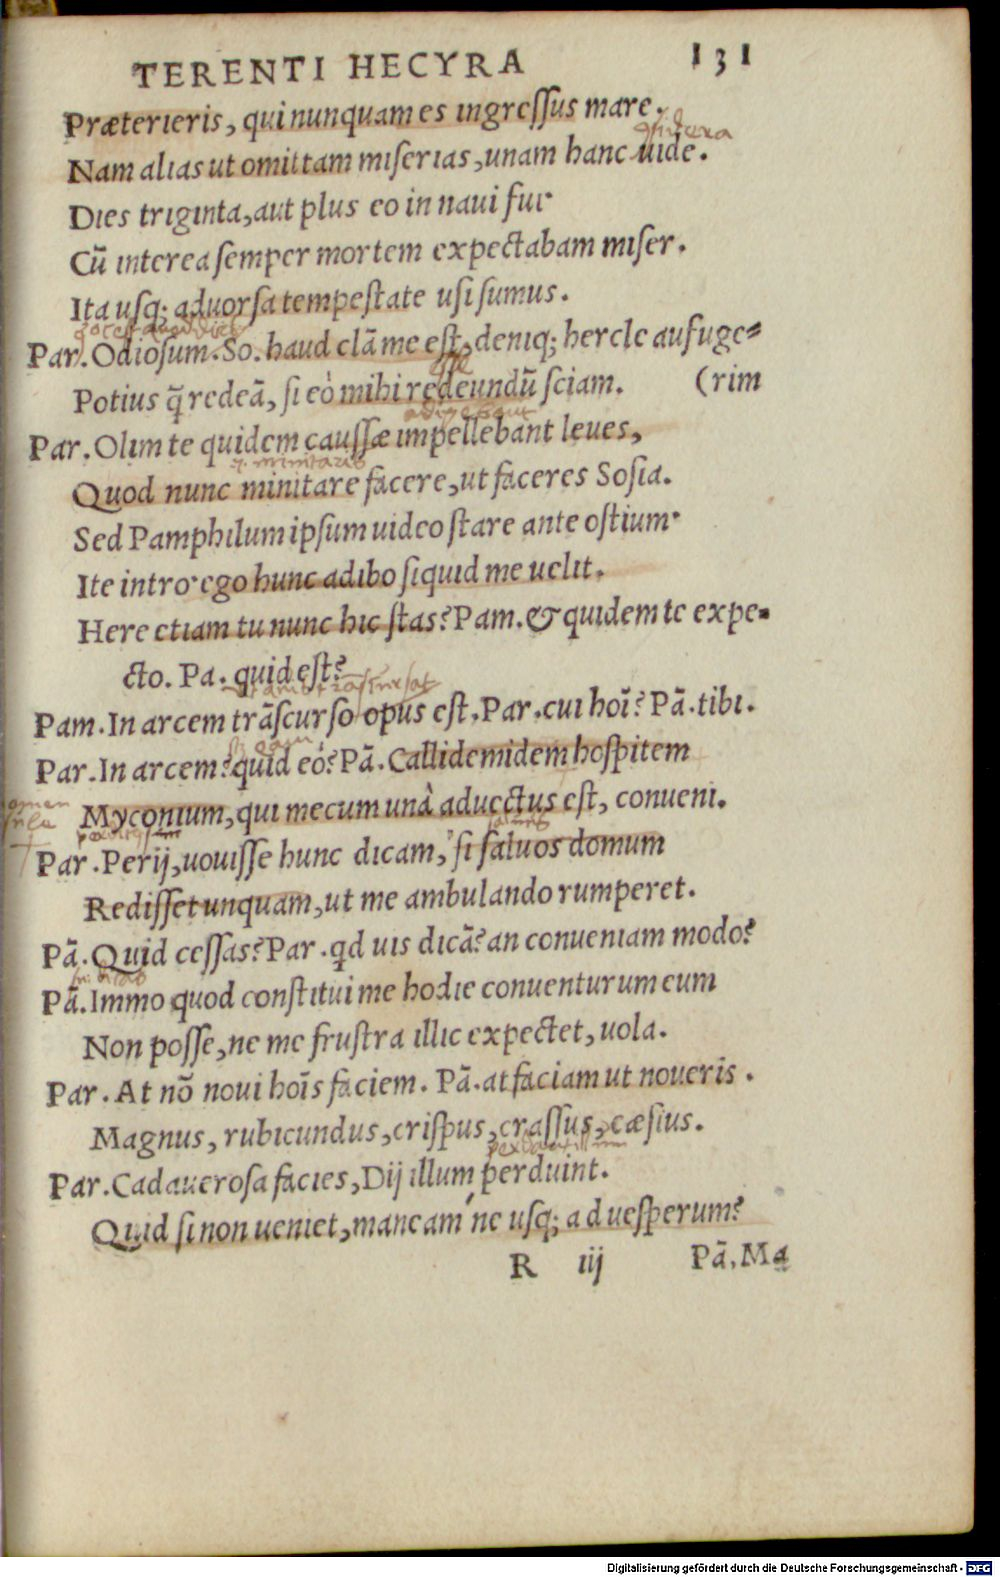 TERENTI HECYRA 131
Præterieris, qui nunquam es ingressus mare.
Nam alias ut omittam miserias, unam hanc uide.
Dies triginta, aut plus eo in naui fui·
Cū interea semper mortem expectabam miser.
Ita usq; aduorsa tempestate usi sumus.
Par. Odiosum. So. haud clā me est, deniq; hercle aufuge=
Potius q̄ redeā, si eò mihi redeundū sciam. (rim
esse
Par. Olim te quidem caussæ impellebant leues,
Quod nunc minitare facere, ut faceres Sosia.
Sed Pamphilum ipsum uideo stare ante ostium·
Ite intro· ego hunc adibo siquid me uelit.
Here etiam tu nunc hic stas? Pam. & quidem te expe=
cto. Pa. quid est?
Pam. In arcem trāscurso opus est. Par. cui hoī? Pā. tibi.
Par. In arcem? quid eò? Pā. Callidemidem hospitem
Myconium, qui mecum unà aduectus est, conueni.
Par. Perij, uouisse hunc dicam, si saluos domum
Redisset unquam, ut me ambulando rumperet.
Pā. Quid cessas? Par. qd uis dicā? an conueniam modo?
Pā. Immo quod constitui me hodie conuenturum eum
Non posse, ne me frustra illic expectet, uola.
Par. At nō noui hoīs faciem. Pā. at faciam ut noueris.
Magnus, rubicundus, crispus, crassus, cæsius.
Par. Cadauerosa facies, Dij illum perduint.
Quid si non ueniet, maneam'ne usq; ad uesperum?
R iij Pā. Ma
Digitalisierung gefördert durch die Deutsche Forschungsgemeinschaft - DFG